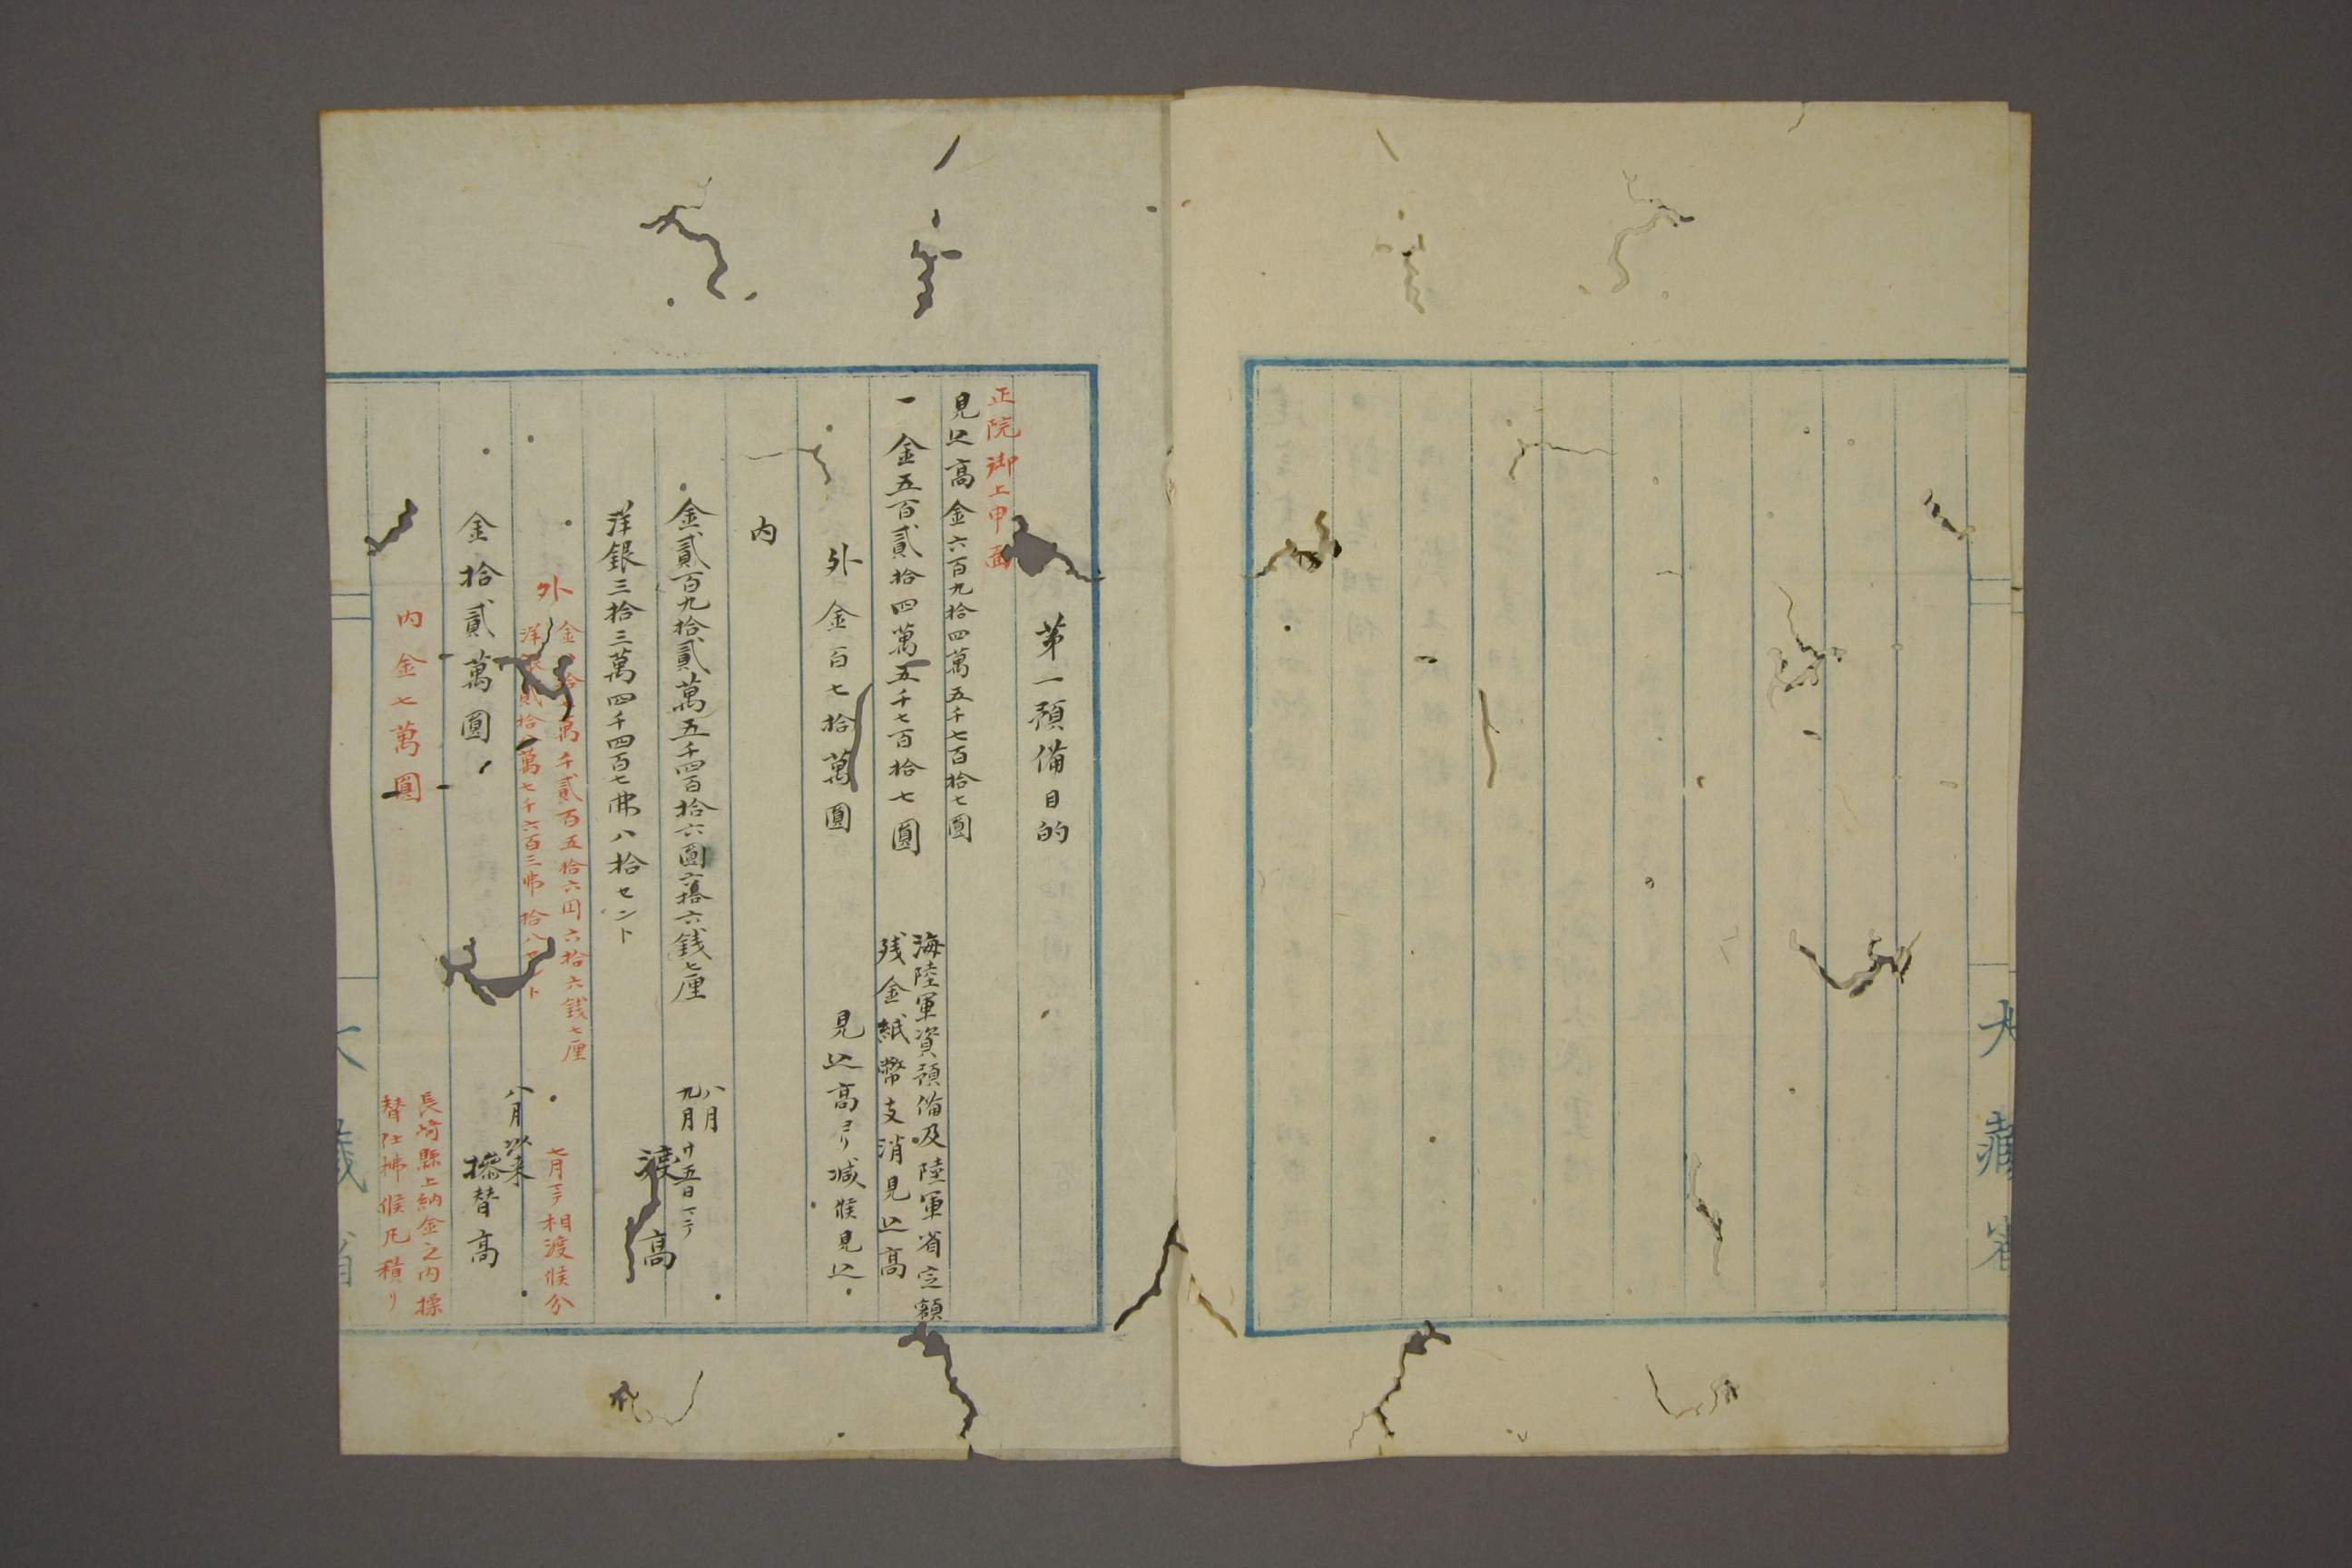 第一預備目的
正院御上申面
見込高金六百九拾四萬五千七百拾七圓
一金五百貳拾四萬五千七百拾七圓
海陸軍資預備及陸軍省定額
残金紙幣支消見込高
外金百七拾萬圓
見込高ヨリ減候見込
内
金貳百九拾貳萬五千四百拾六圓六拾六銭七厘
洋銀三拾三萬四千四百七弗八拾セント
八月
九月廿五日マテ
渡高
外
金拾萬千貳百五拾六円六拾六銭七厘
洋貳拾萬七千六百三弗拾八ト
七月マテ相渡候分
金拾貳萬圓
八月以来
操替高
内金七萬圓
長崎縣上納金之内操
替仕拂候凡積リ
大藏省
大藏省